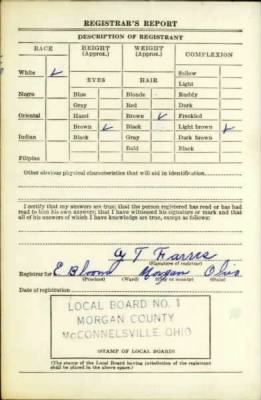 REGISTRAR'S REPORT
DESCRIPTION OF REGISTRANT
RACE HEIGHT (Approx.) WEIGHT (Approx.) COMPLEXION
White ✓ Sallow
EYES HAIR Light
Negro Blue Blonde Ruddy
Gray Red Dark
Oriental Hazel Brown ✓ Freckled
Brown ✓ Black Light brown ✓
Indian Black Gray Dark brown
Bald Black
Filipino
Other obvious physical characteristics that will aid in identification
I certify that my answers are true; that the person registered has read or has had
read to him his own answers; that I have witnessed his signature or mark and that
all of his answers of which I have knowledge are true, except as follows:
T Farres
(Signature of registrar)
Registrar for E Bloom Morgan Ohio
(Precinct) (Ward) (City or county) (State)
Date of registration
LOCAL BOARD NO. 1
MORGAN COUNTY
McCONNELSVILLE, OHIO
(STAMP OF LOCAL BOARD)
(The stamp of the Local Board having jurisdiction of the registrant
shall be placed in the above space.)